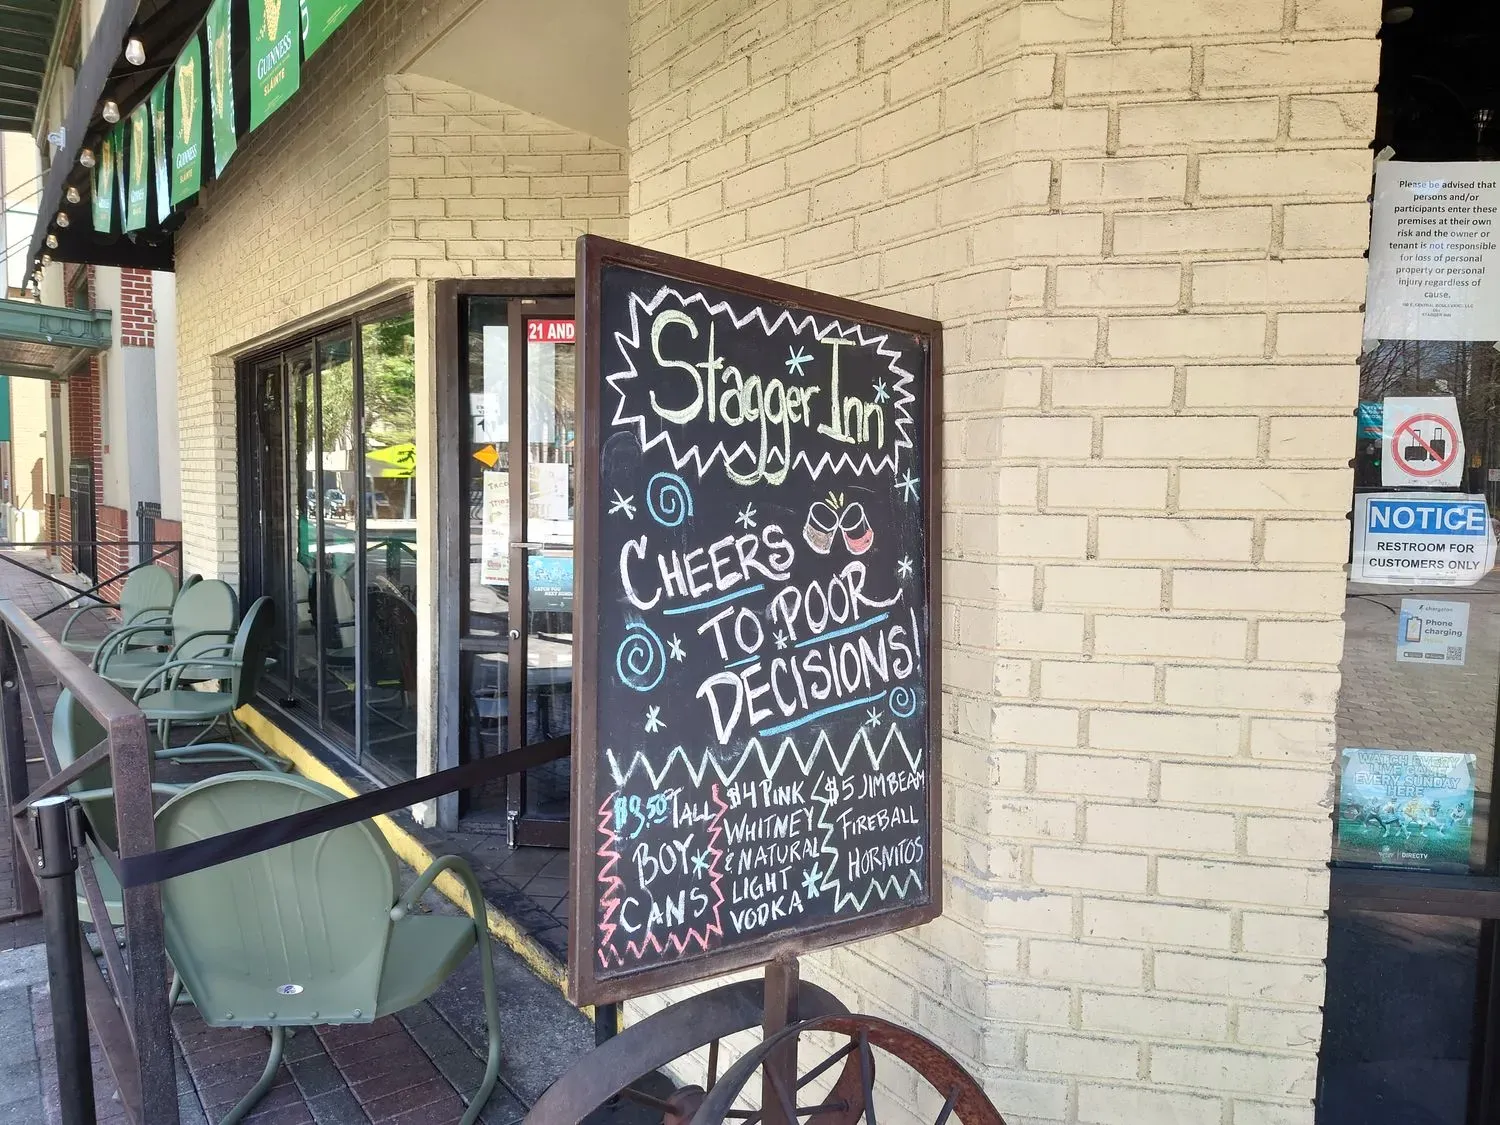 GUINNESS
SLÁINTE
GUINNESS
SLÁINTE
21 AND
Stagger Inn
CHEERS
TO POOR
DECISIONS!
$3.50 TALL
BOY
CANS
$4 PINK
WHITNEY
& NATURAL
LIGHT
VODKA
$5 JIM BEAM
FIREBALL
HORNITOS
Please be advised that
persons and/or
participants enter these
premises at their own
risk and the owner or
tenant is not responsible
for loss of personal
property or personal
injury regardless of
cause.
STAGGER INN
NOTICE
RESTROOM FOR
CUSTOMERS ONLY
chargefon
Phone
charging
WATCH EVERY
GAME
EVERY SUNDAY
HERE
DIRECTV